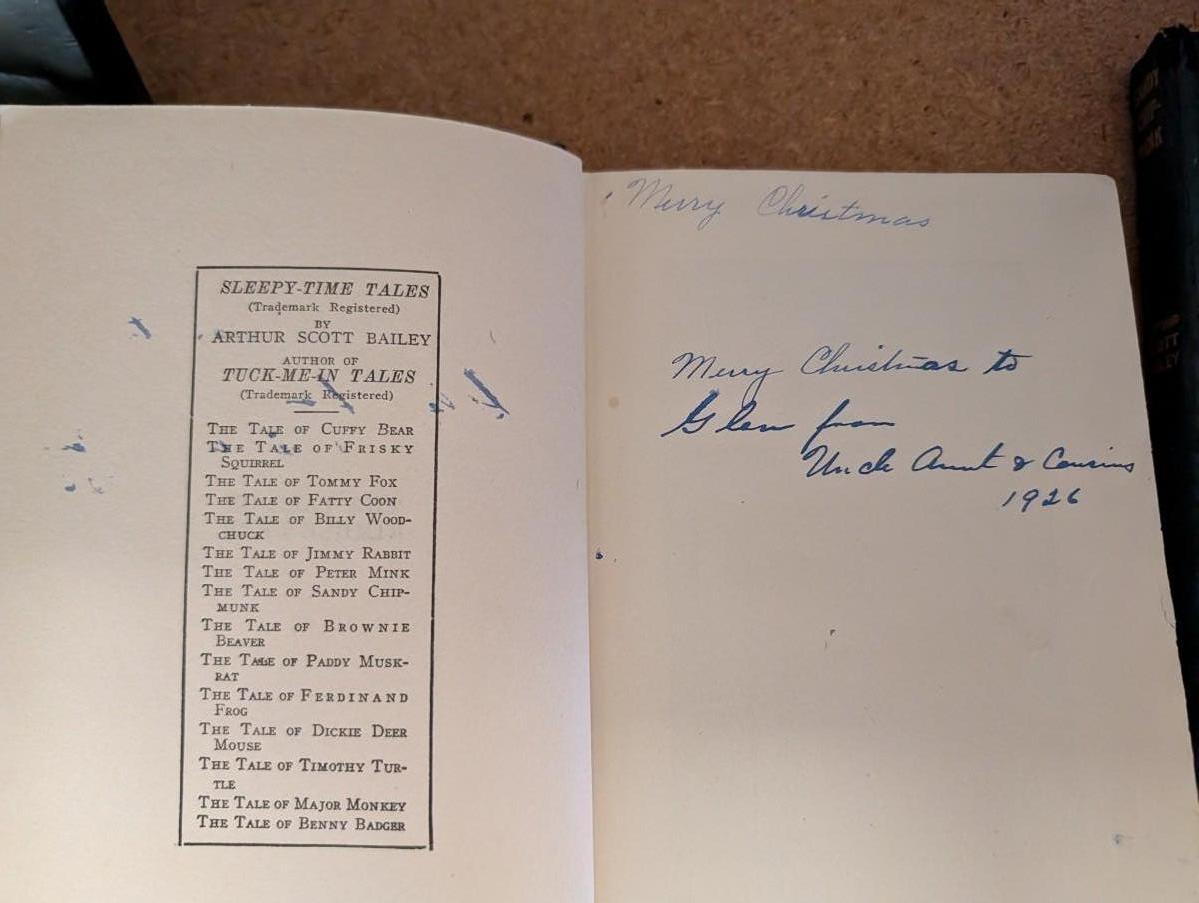 SLEEPY-TIME TALES
(Trademark Registered)
BY
ARTHUR SCOTT BAILEY
AUTHOR OF
TUCK-ME-IN TALES
(Trademark Registered)
THE TALE OF CUFFY BEAR
THE TALE OF FRISKY
SQUIRREL
THE TALE OF TOMMY FOX
THE TALE OF FATTY COON
THE TALE OF BILLY WOOD-
CHUCK
THE TALE OF JIMMY RABBIT
THE TALE OF PETER MINK
THE TALE OF SANDY CHIP-
MUNK
THE TALE OF BROWNIE
BEAVER
THE TALE OF PADDY MUSK-
RAT
THE TALE OF FERDINAND
FROG
THE TALE OF DICKIE DEER
MOUSE
THE TALE OF TIMOTHY TUR-
TLE
THE TALE OF MAJOR MONKEY
THE TALE OF BENNY BADGER
Merry Christmas
Merry Christmas to
Glen from
Uncle Aunt & Cousins
1926